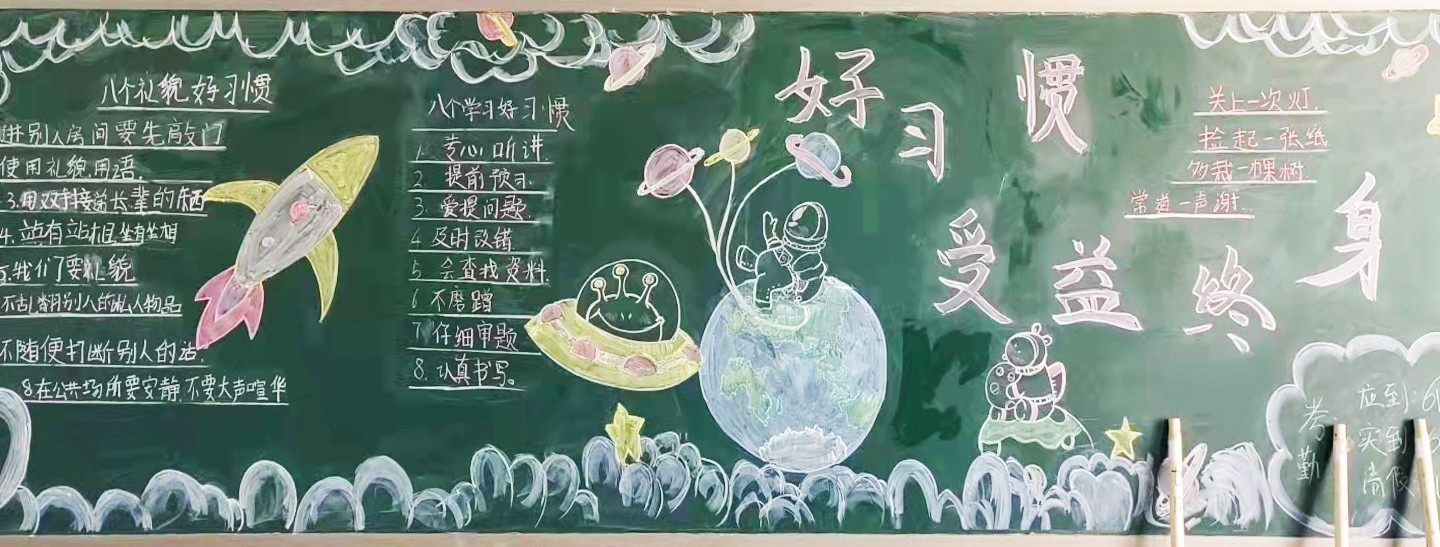 八个礼貌好习惯
进别人房间要先敲门
使用礼貌用语.
3.用双手接递长辈的东西
4.站有站相坐有坐相
5.我们了要礼貌
不乱翻别人的私人物品
不随便打断别人的话.
8.在公共场所要安静.不要大声喧华
八个学习好习惯
1 专心听讲.
2 提前预习.
3. 爱提问题.
4 及时改错.
5 会查找资料.
6 不磨蹭
7 仔细审题
8. 认真书写。
好习惯
受益终身
关上一次灯.
捡起一张纸
多栽一棵树.
常道一声谢.
考勤
应到:
实到